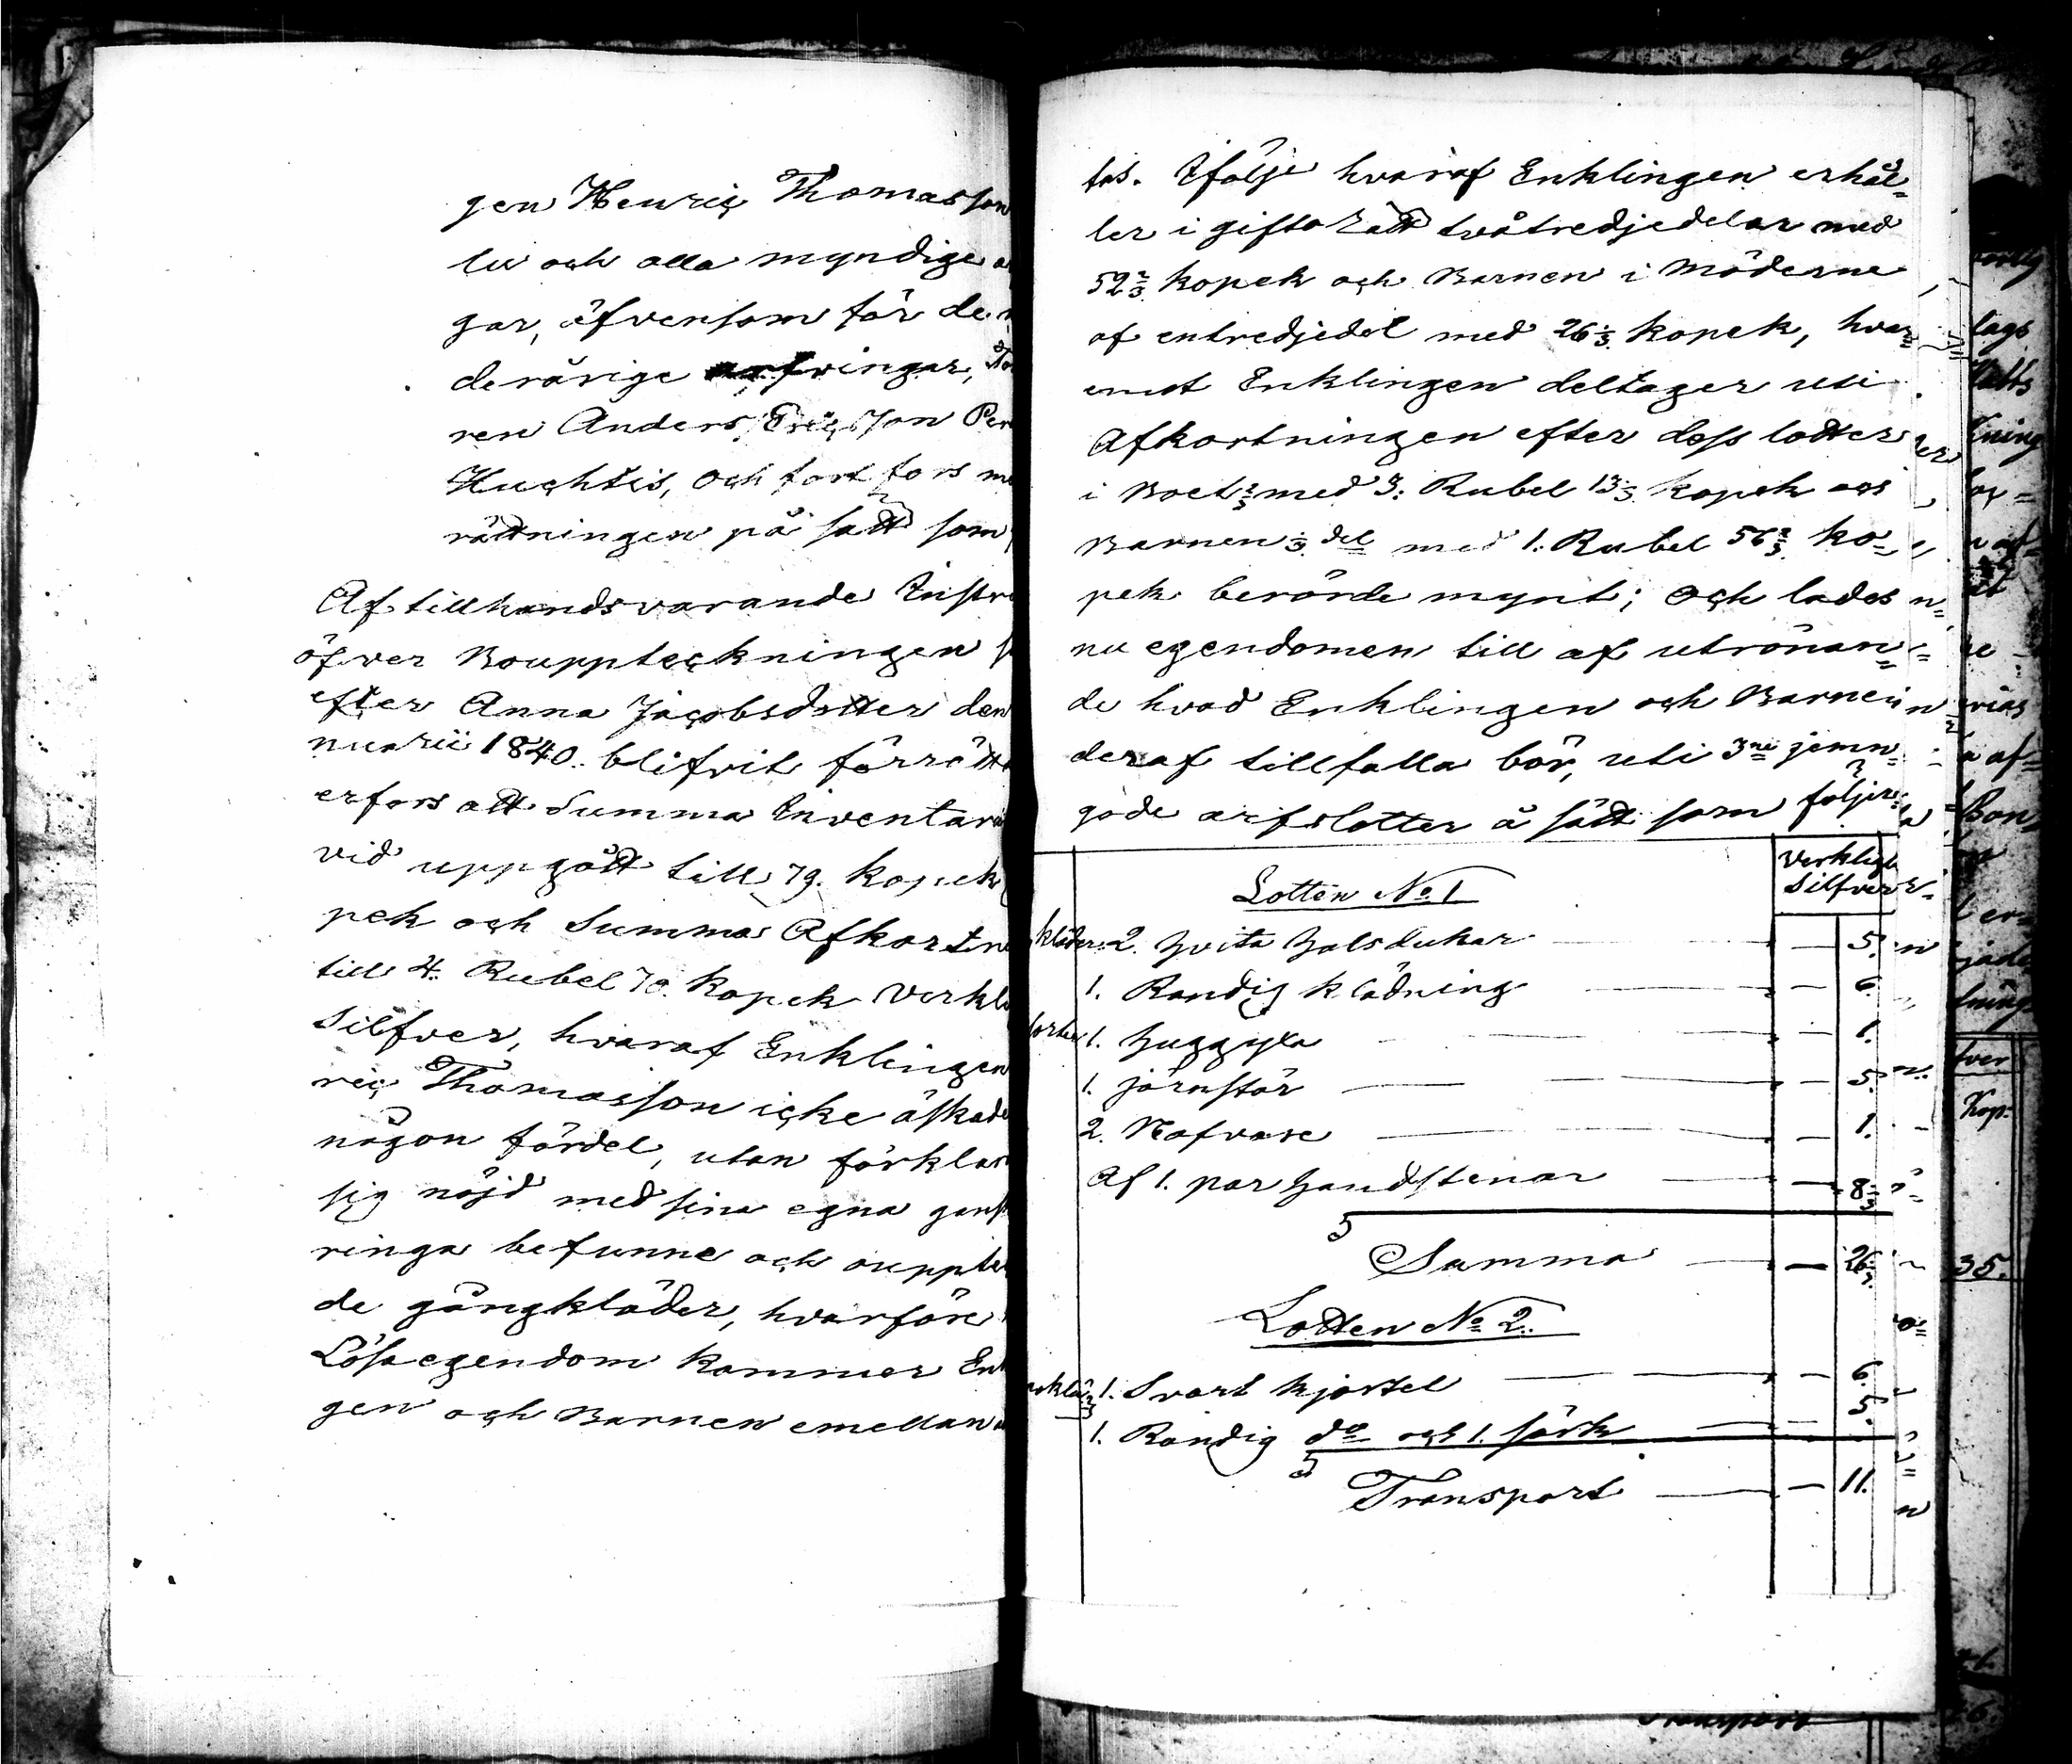 gen Henric Thomasson
lu och alla myndige a
gar, äfvensom för de n
derårige arfvingar,
ren Anders Ericsson Per
Huchtis, och fortfors me
rättningen på sätt som
Af tillhandsvarande Instru
öfver Bouppteckningen s
efter Anna Jacobsdotter den
nuarii 1840. blifvit förrätt
erfors att Summa Inventarii
vid uppgått till 79. kopek
pek och Summa Afkortni
till 4. Rubel 70. kopek Verkli
Silfver, hvaraf Enklingen
ric Thomasson icke äskade
någon fördel, utan förklar
sig nöjd med sina egna gansk
ringa befunne och oupptek
de gångkläder, hvarföre
Lösa egendom kommer Enk
gen och Barnen emellan a
tas. Ifölje hvaraf Enklingen erhål-
ler i giftorätt tvåtredjedelar med
52 2/3 kopek och Barnen i Möderne
af entredjedel med 26 1/3 kopek, hvar=
emot Enklingen deltager uti
Afkortningen efter dess lotter
i Boet 2/3 med 3: Rubel 13 1/3 kopek och
Barnen 1/3 del med 1: Rubel 56 2/3 ko=
pek berörde mynt; och lades
nu egendomen till af utrönan=
de hvad Enklingen och Barnen
deraf tillfalla bör, uti 3ne jemn=
gode arfslotter å sätt som följer:
Verkligt
Silfver
Lotten No. 1
kläder. 2. hvita halsdukar — 5.
1. Randig klädning — 6.
1. huggyxa — 1.
1. jernstör — 5.
2. Nafvare — 1.
Af 1. par handstenar — 8 1/3
Summa — 26 1/3
Lotten No 2.
1. Svart kjortel — 6.
1. Randig do och 1. särk — 5.
Transport — 11.
lags
Kop.
35.
Transport